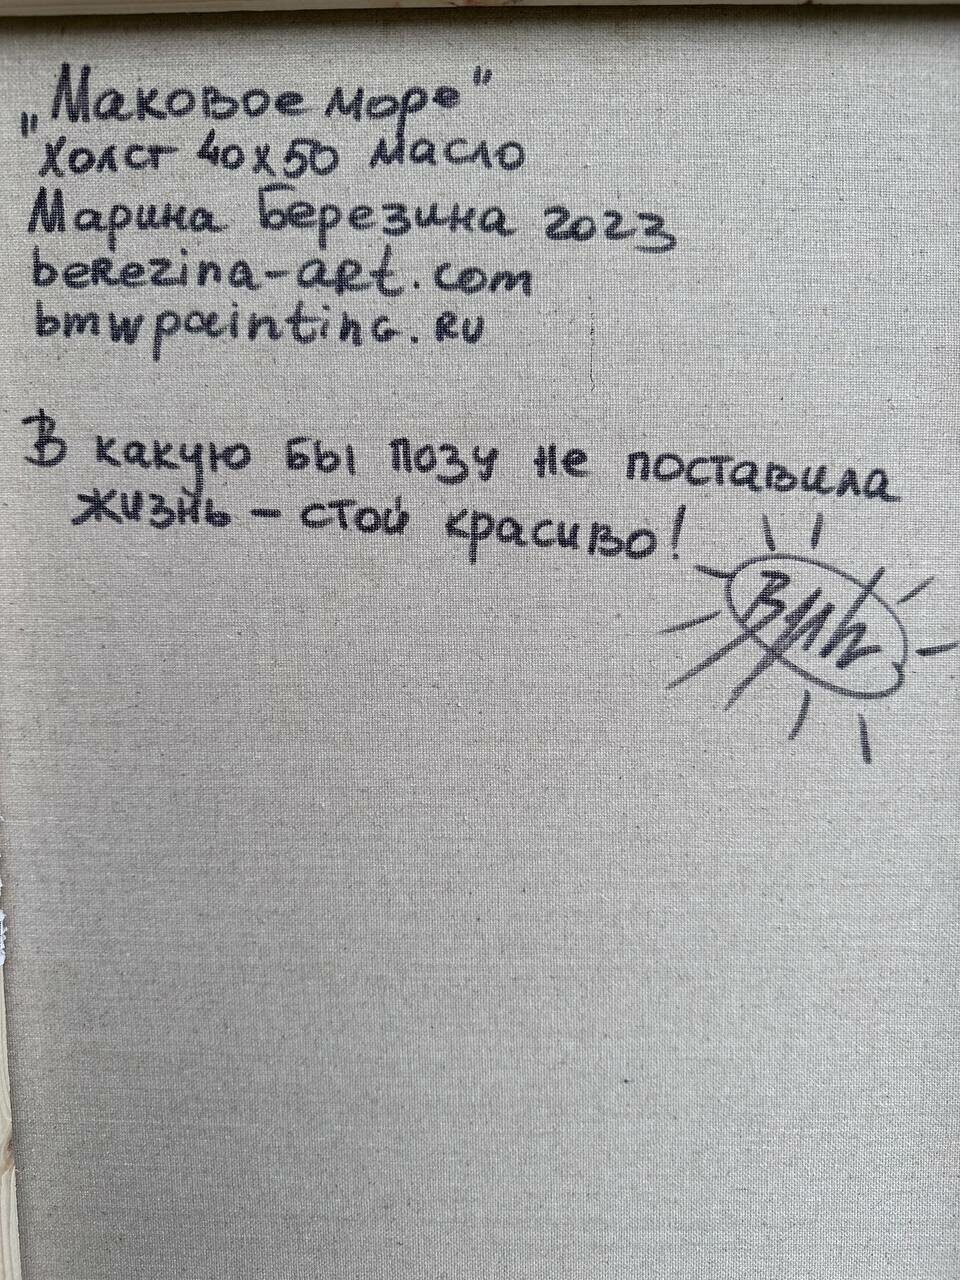 „Маковое море"
Холст 40х50 масло
Марина Березина 2023
berezina-art.com
bmwpainting.ru
В какую бы позу не поставила
жизнь – стой красиво!